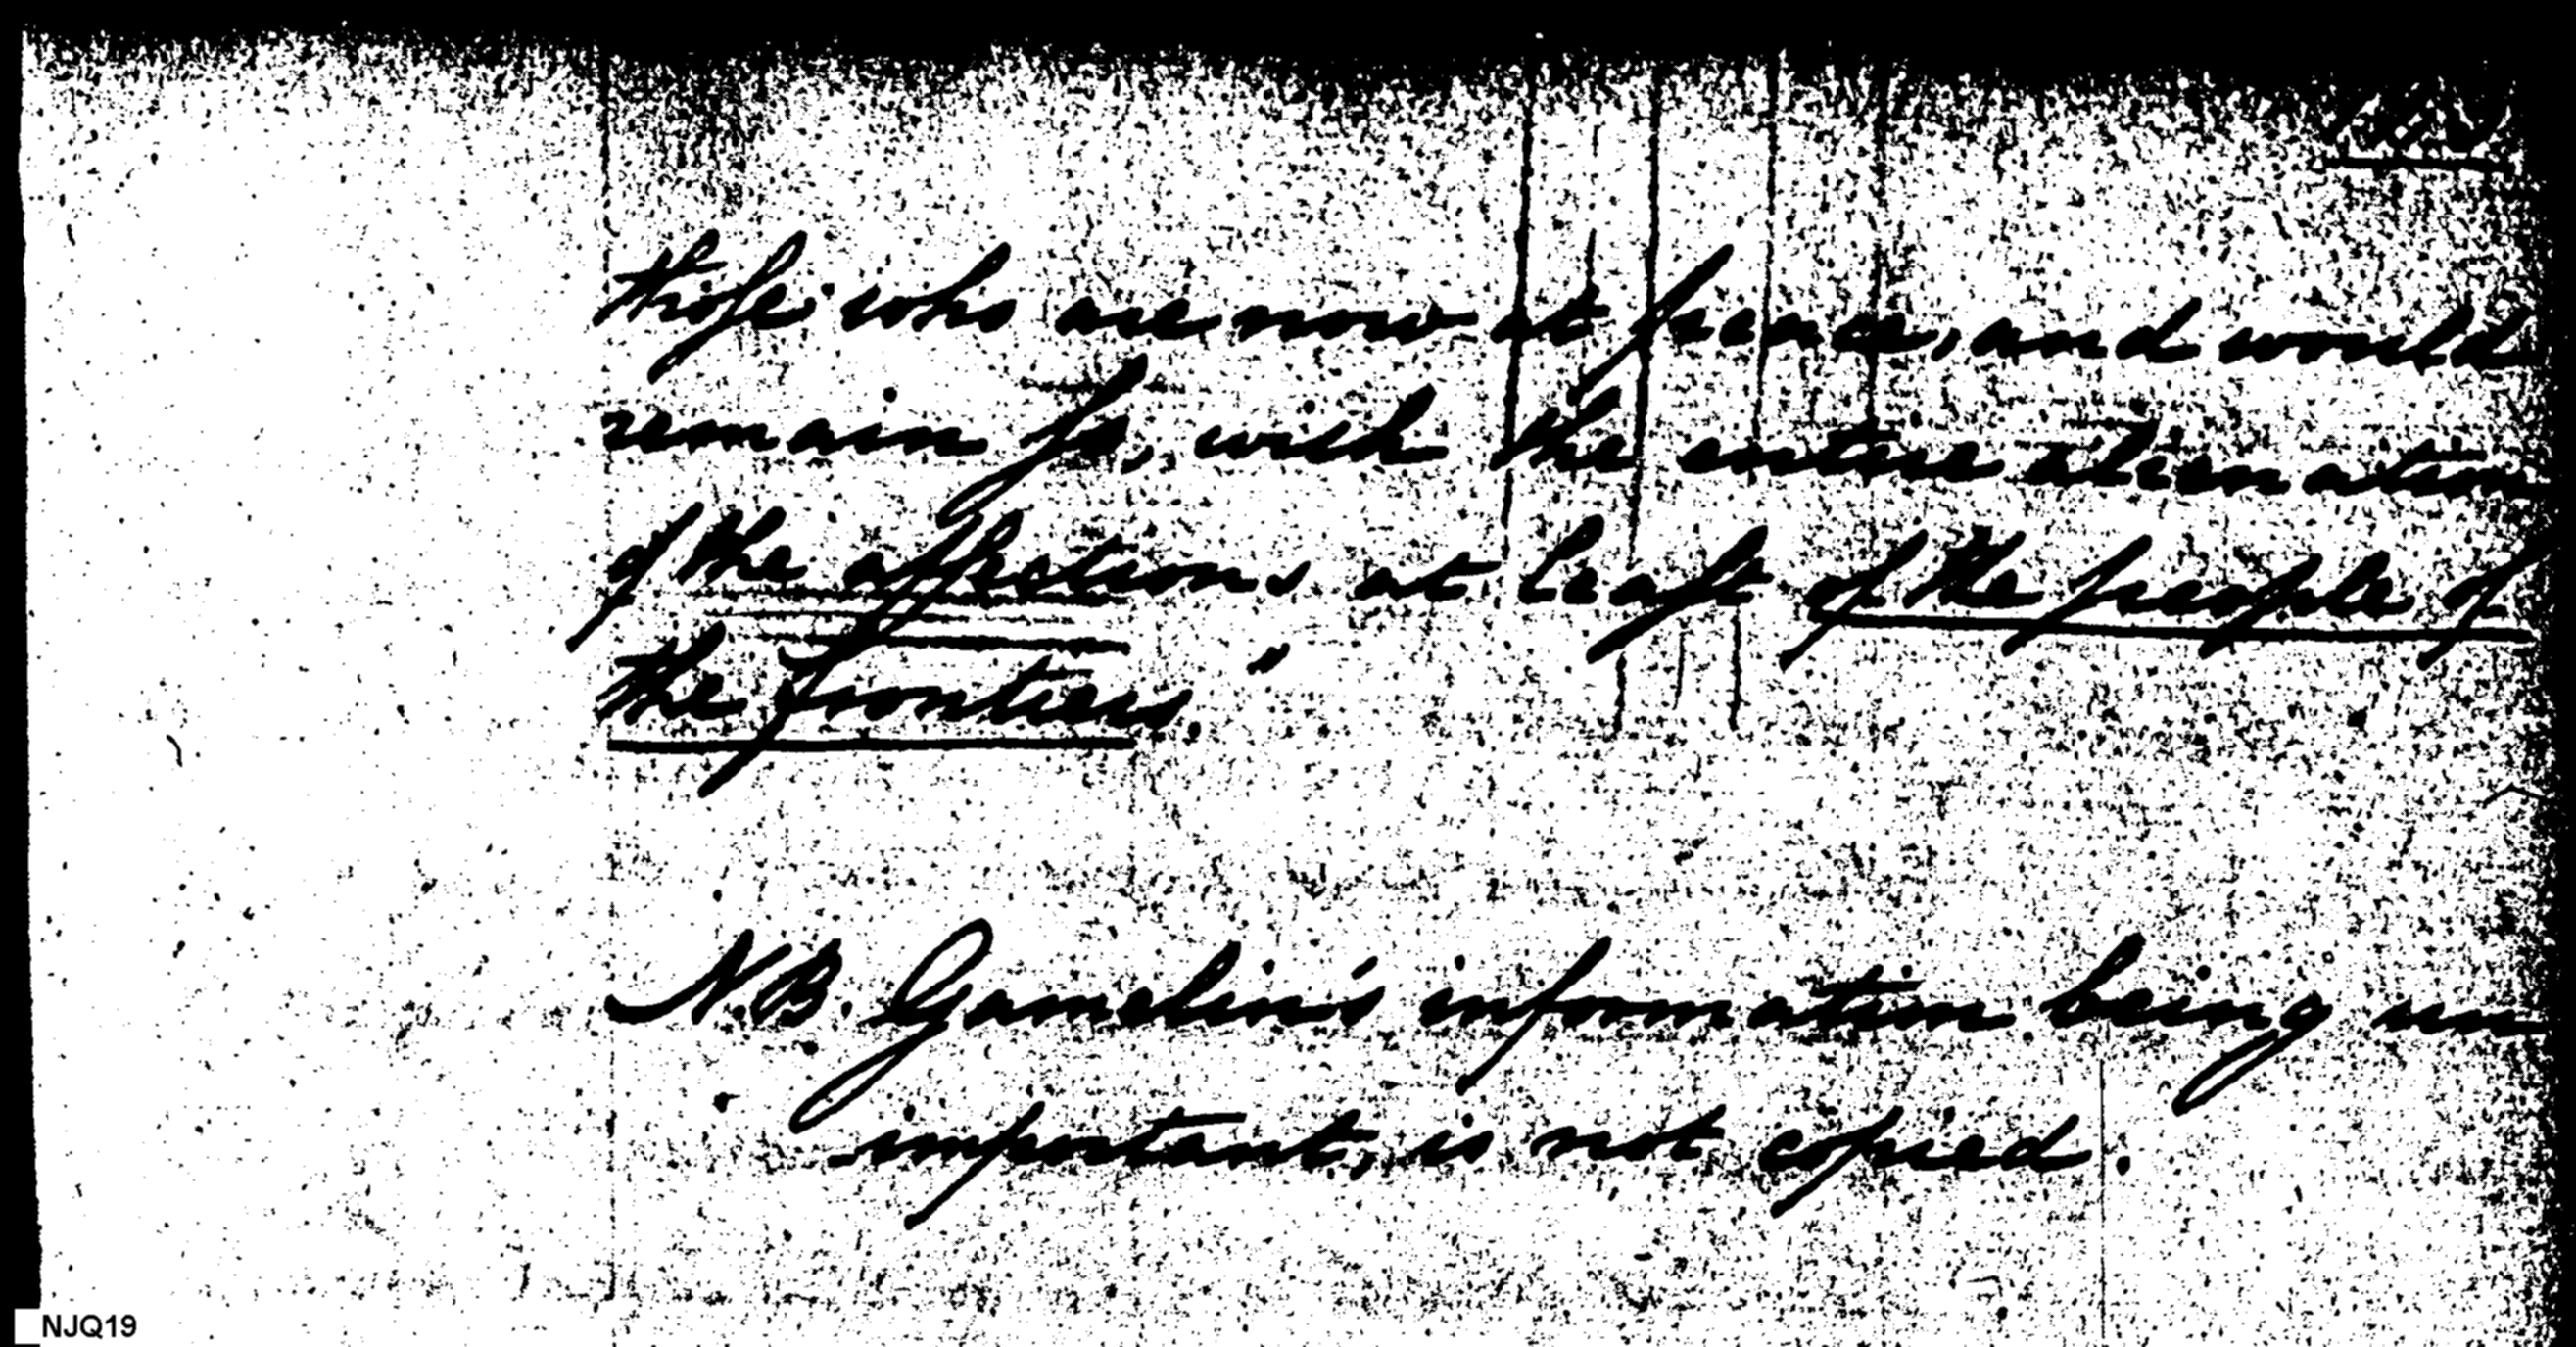 those who are now at peace, and would
remain so, with the entire alienation
of the affections at least of the people of
the frontiers."
N.B. Gamelin's information being un
important, is not copied.
NJQ19